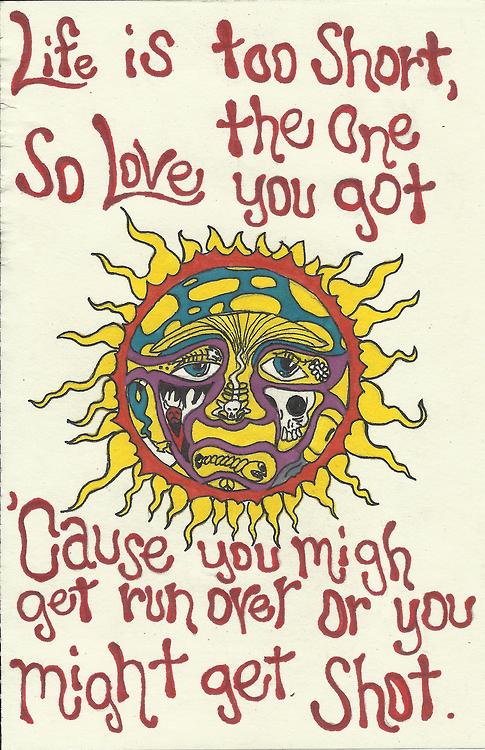 Life is too Short,
So Love the One
you got
'Cause you migh
get run over or you
might get Shot.